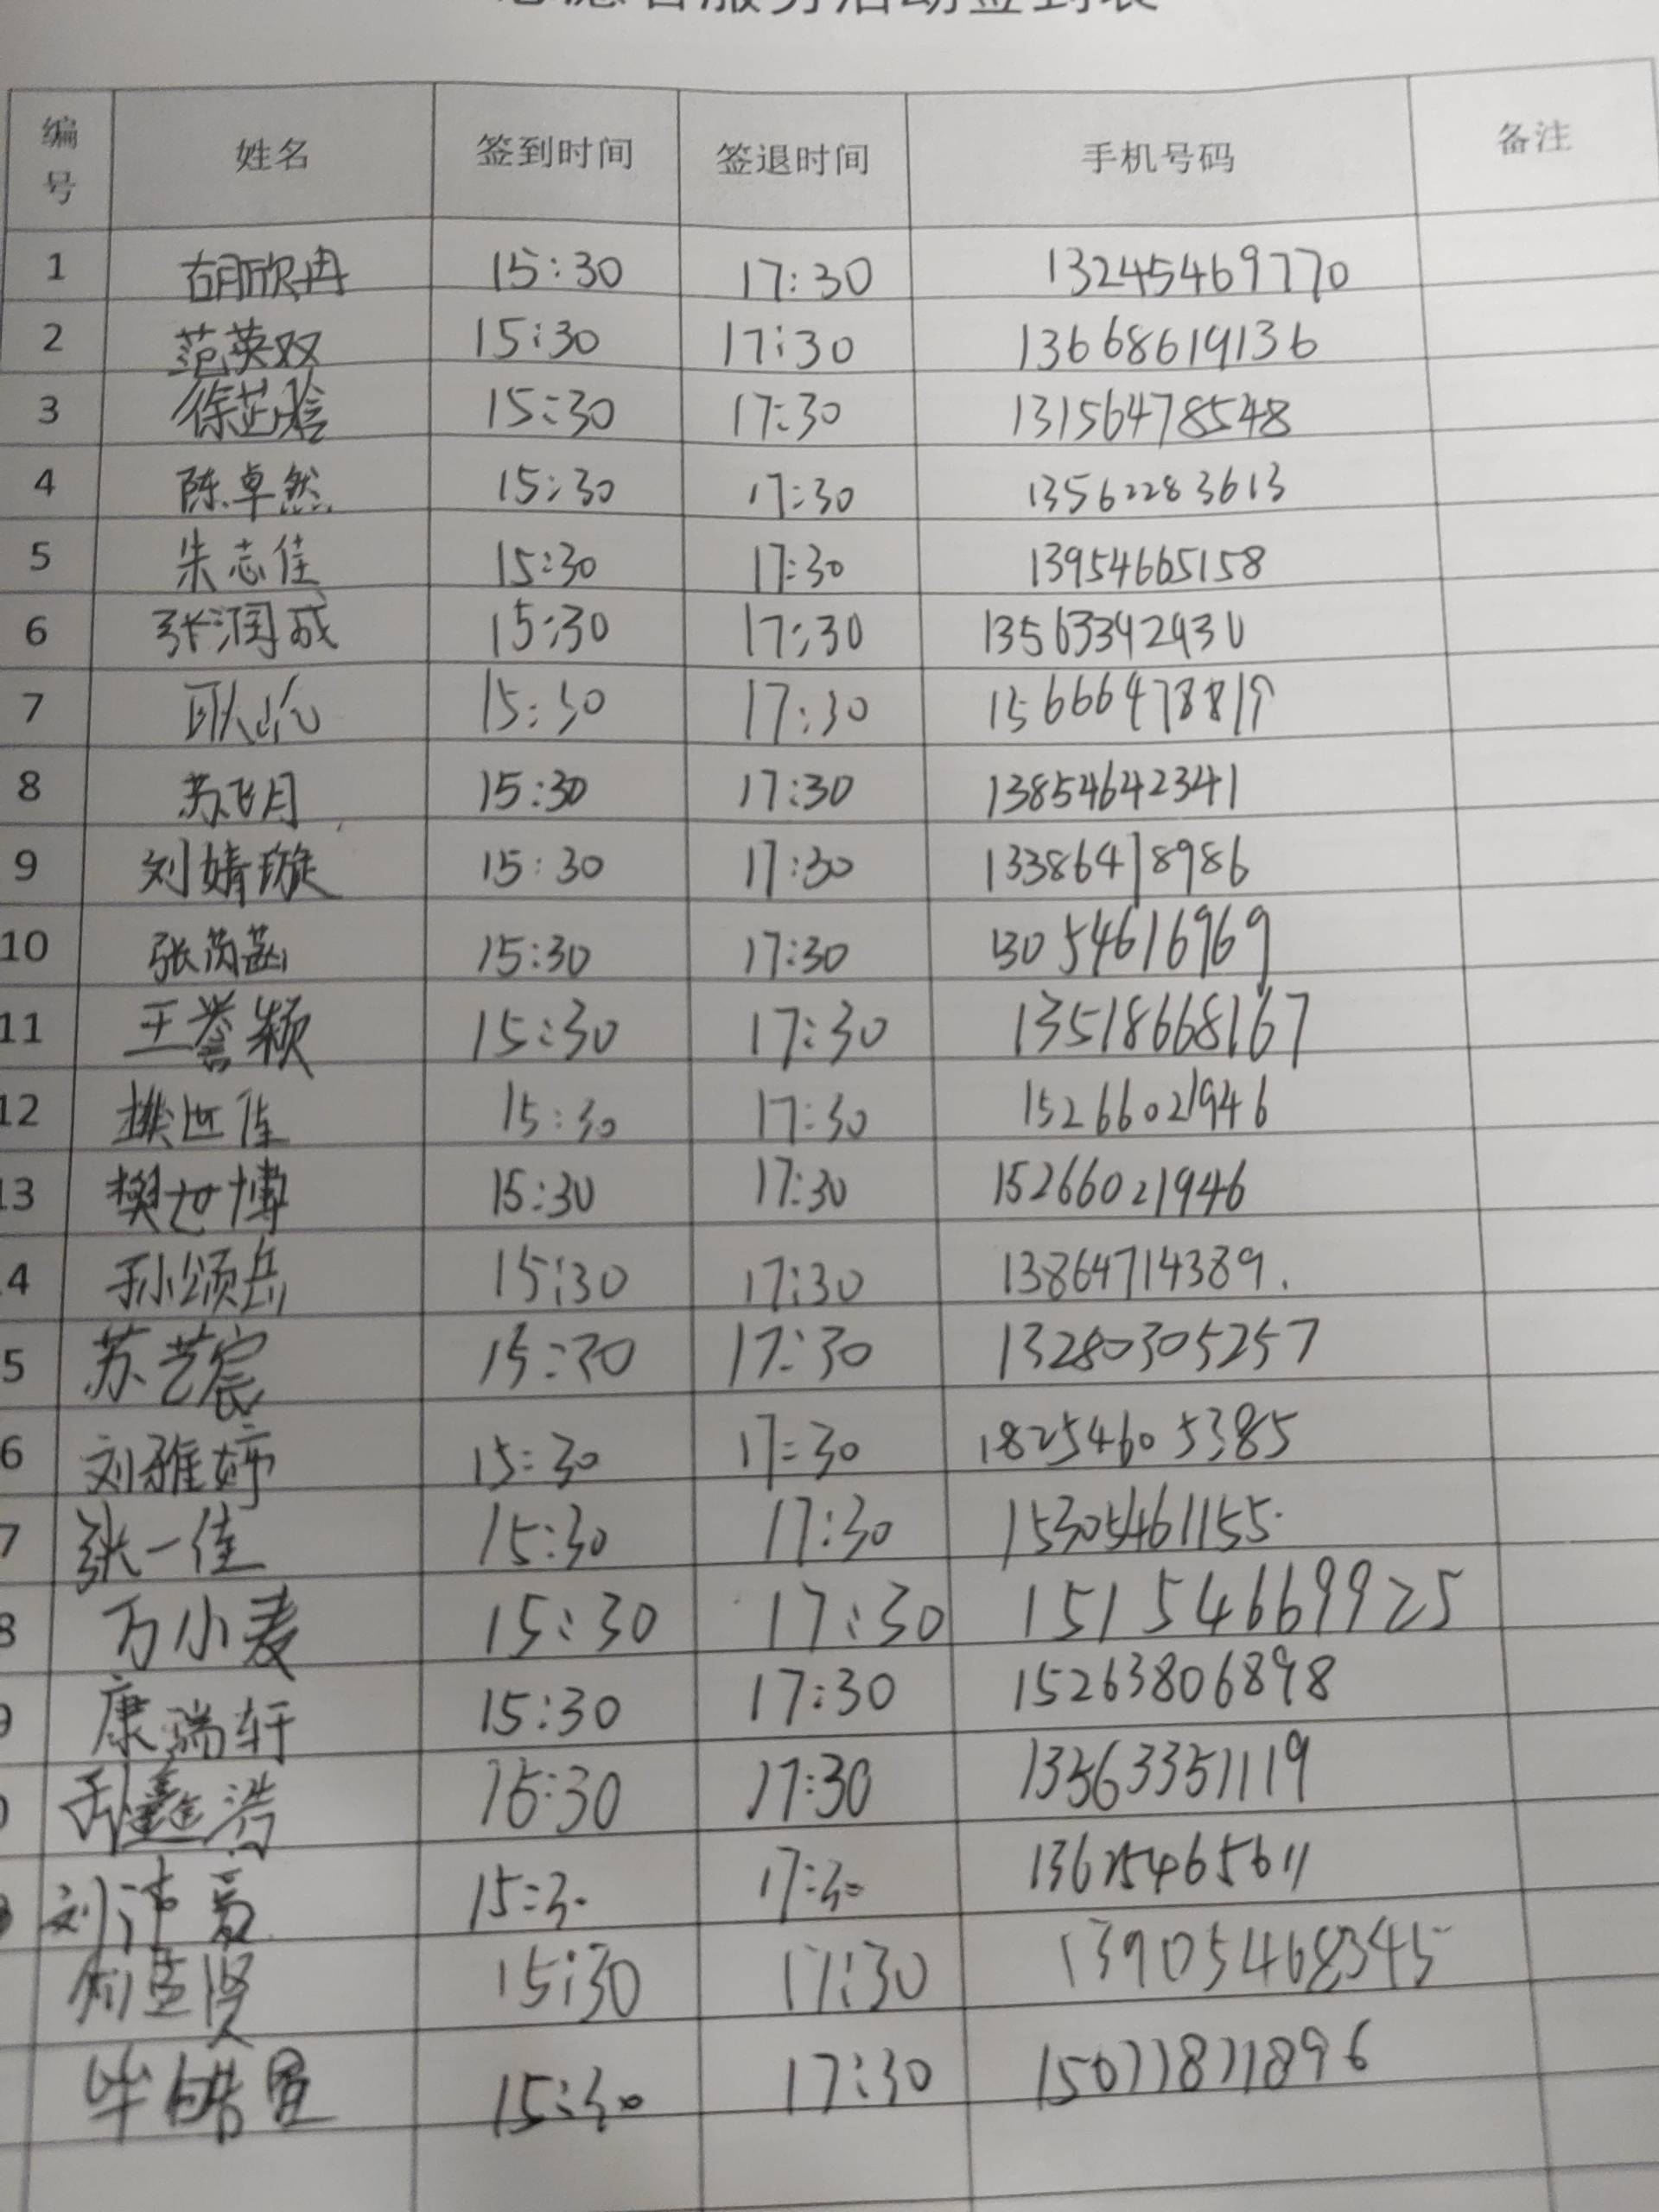 志愿者服务活动签到表
编号 姓名 签到时间 签退时间 手机号码 备注
1 胡欣冉 15:30 17:30 13245469770
2 范英双 15:30 17:30 13668619136
3 徐芷晗 15:30 17:30 13156478548
4 陈卓然 15:30 17:30 13562283613
5 朱志佳 15:30 17:30 13954665158
6 张润成 15:30 17:30 13563392930
7 15:30 17:30 15666478819
8 苏飞月 15:30 17:30 13854642341
9 刘婧璇 15:30 17:30 13386478986
10 张芮菡 15:30 17:30 13054616969
11 王誉颖 15:30 17:30 13518668167
12 15:30 17:30 15266021946
13 樊世博 15:30 17:30 15266021946
4 孙颂岳 15:30 17:30 13864714389.
5 苏艺宸 15:30 17:30 13280305257
6 刘雅婷 15:30 17:30 18254605385
7 张一佳 15:30 17:30 15305461155
8 万小麦 15:30 17:30 15154669925
9 康瑞轩 15:30 17:30 15263806898
0 15:30 17:30 13563351119
刘沛 15:30 17:30 13625465611
15:30 17:30 13905468345
15:30 17:30